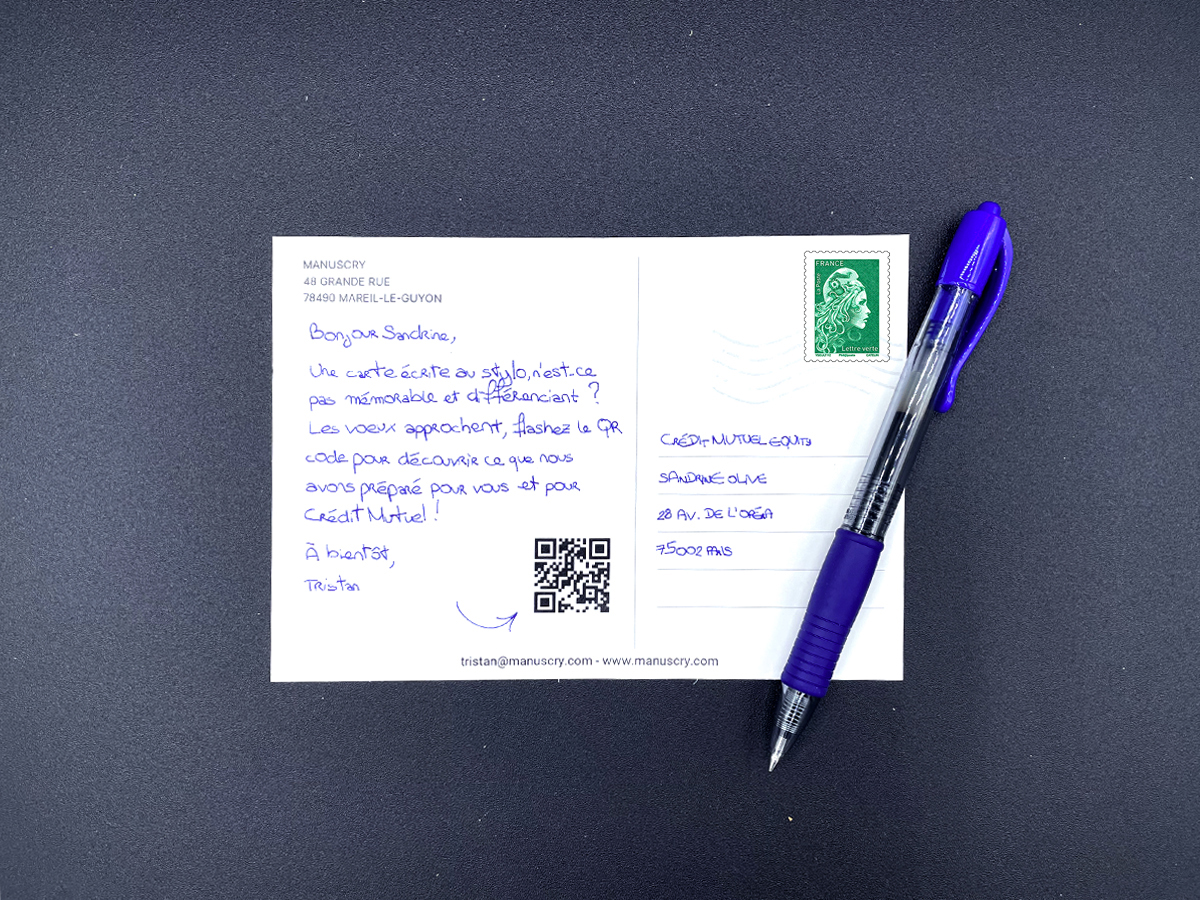 MANUSCRY
48 GRANDE RUE
78490 MAREIL-LE-GUYON
Bonjour Sandrine,
Une carte écrite au stylo, n'est-ce
pas mémorable et différenciant ?
Les voeux approchent, flashez le QR
code pour découvrir ce que nous
avons préparé pour vous et pour
Crédit Mutuel !
À bientôt,
Tristan
tristan@manuscry.com - www.manuscry.com
FRANCE
La Poste
Lettre verte
CRÉDIT MUTUEL EQUITY
SANDRINE OLIVE
28 AV. DE L'OPÉRA
75002 PARIS